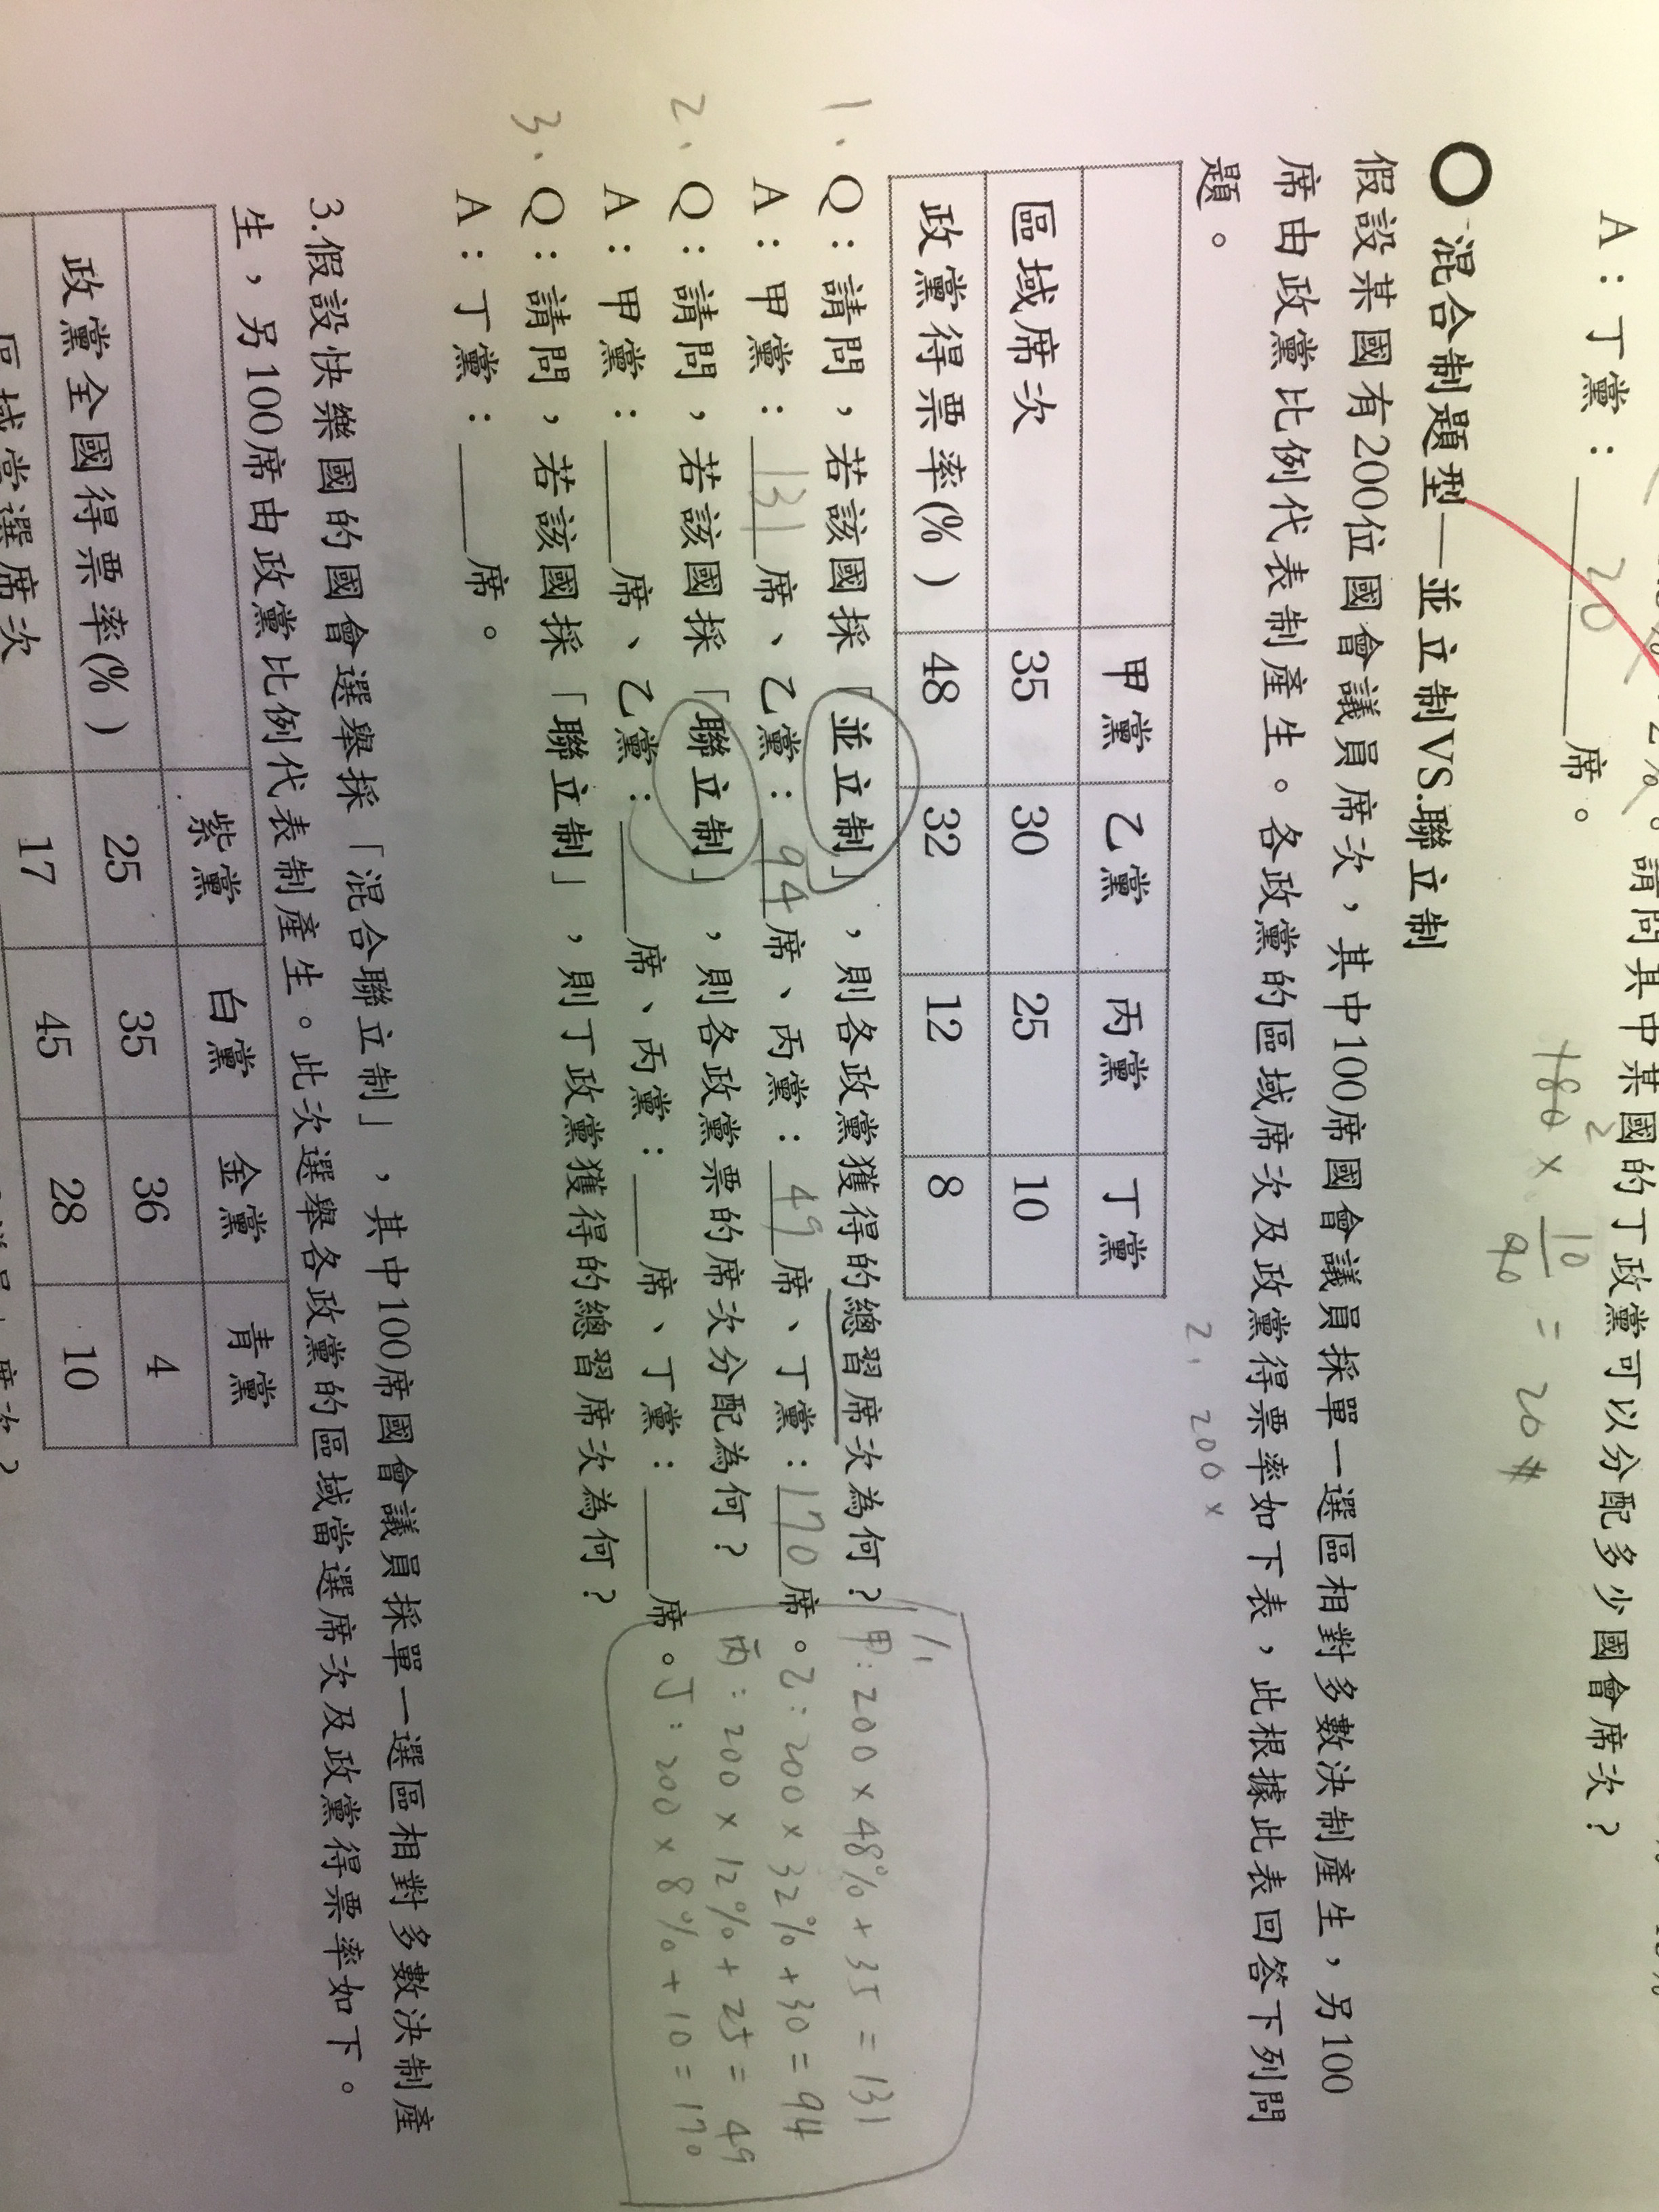 請問其中某國的丁政黨可以分配多少國會席次？
A：丁黨：20席。
180 × 10/90 = 20 #
2
○混合制題型—並立制VS.聯立制
假設某國有200位國會議員席次，其中100席國會議員採單一選區相對多數決制產生，另100
席由政黨比例代表制產生。各政黨的區域席次及政黨得票率如下表，此根據此表回答下列問
題。
2. 200 ×
甲黨 乙黨 丙黨 丁黨
區域席次 35 30 25 10
政黨得票率(%) 48 32 12 8
1. Q：請問，若該國採「並立制」，則各政黨獲得的總習席次為何？
A：甲黨：131席、乙黨：94席、丙黨：49席、丁黨：170席。
2. Q：請問，若該國採「聯立制」，則各政黨票的席次分配為何？
A：甲黨：____席、乙黨：____席、丙黨：____席、丁黨：____席。
3. Q：請問，若該國採「聯立制」，則丁政黨獲得的總習席次為何？
A：丁黨：____席。
1.
甲：200 × 48% + 35 = 131
乙：200 × 32% + 30 = 94
丙：200 × 12% + 25 = 49
丁：200 × 8% + 10 = 170
3.假設快樂國的國會選舉採「混合聯立制」，其中100席國會議員採單一選區相對多數決制產
生，另100席由政黨比例代表制產生。此次選舉各政黨的區域當選席次及政黨得票率如下。
紫黨 白黨 金黨 青黨
政黨全國得票率(%) 25 35 36 4
區域當選席次 17 45 28 10